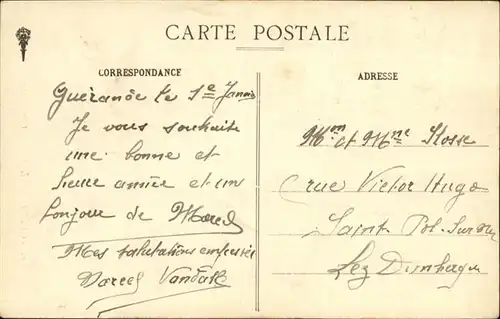 CARTE POSTALE
CORRESPONDANCE
Guérande le 1e Janvier
Je vous souhaite
une bonne et
heureuse année et un
bonjour de Marcel
Mes salutations empressées
Marcel Vandale
ADRESSE
Mm et Mme Stosse
rue Victor Hugo
Saint Pol Sur Mer
Lez Dunkerque